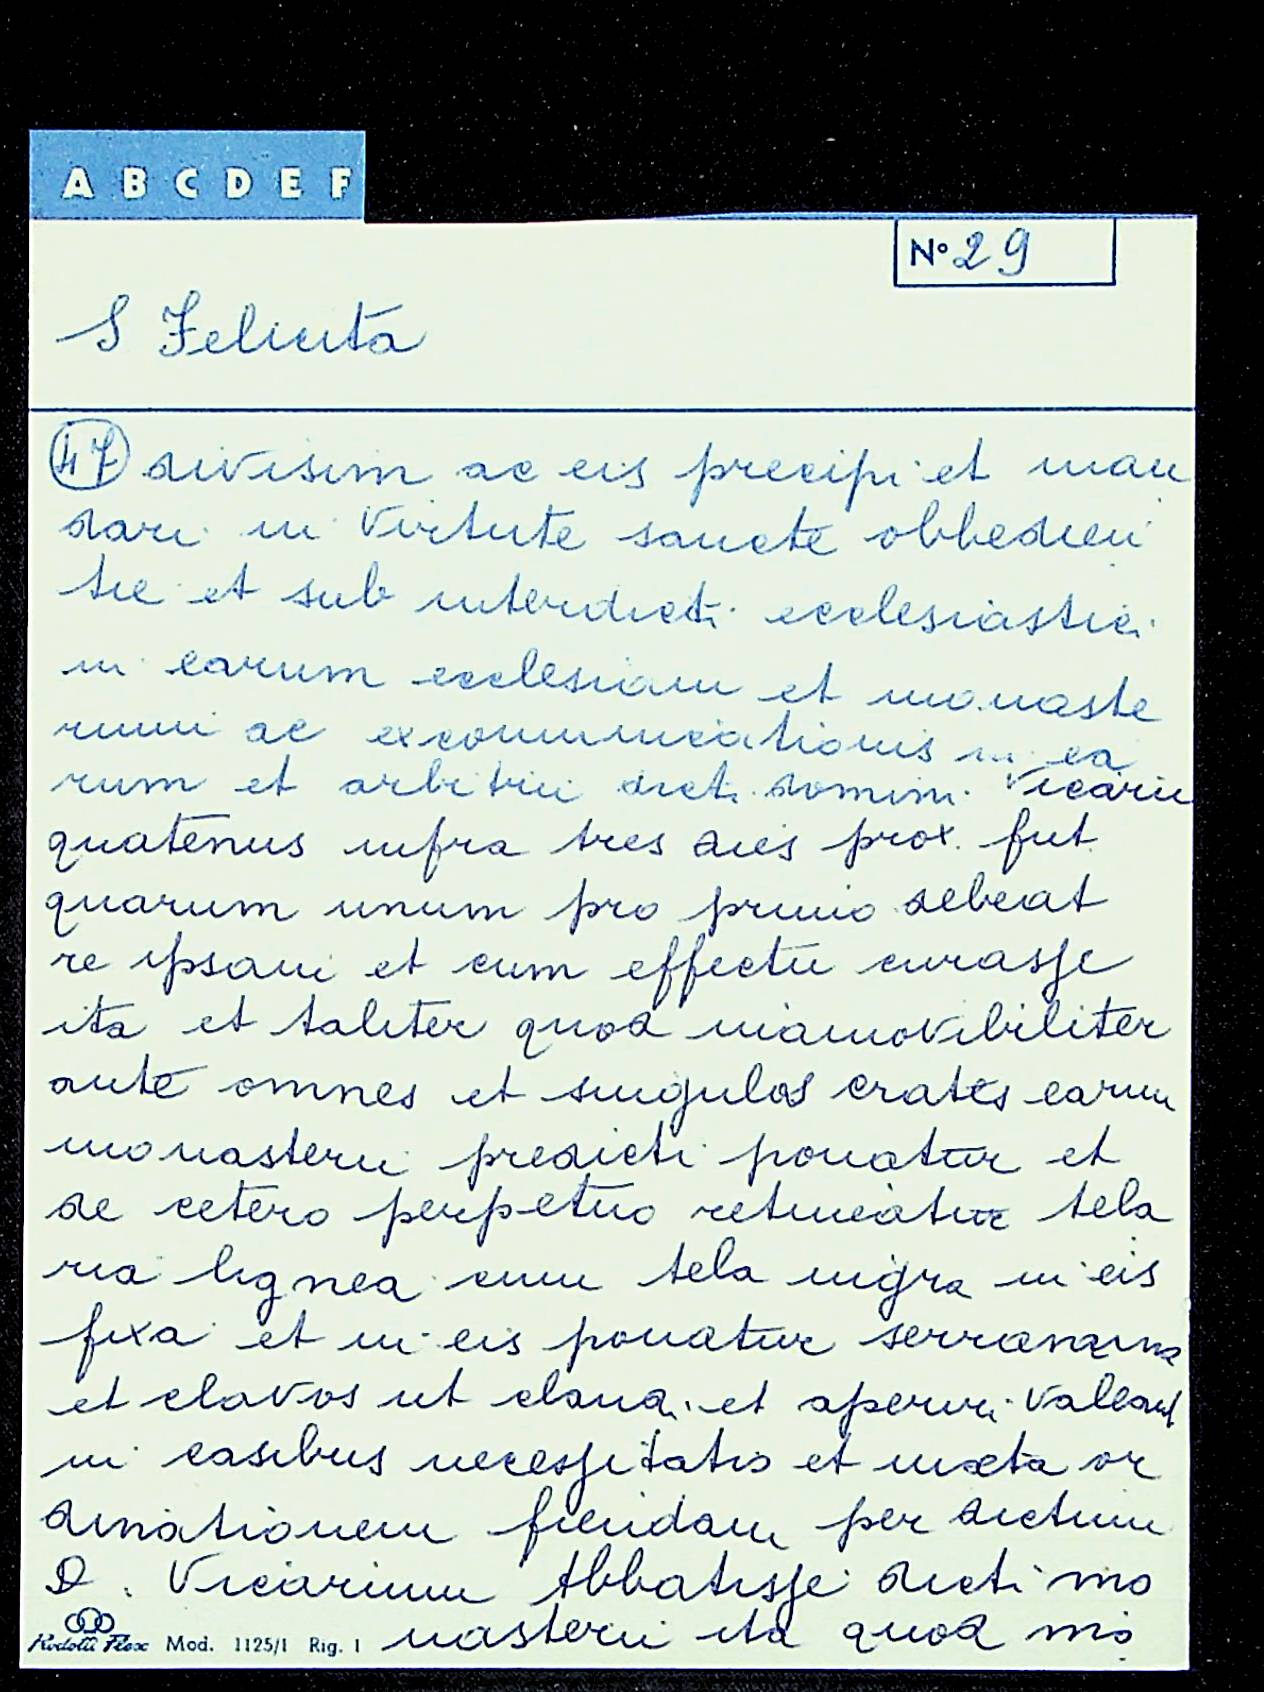 A B C D E F
N° 29
S Felicita
47 divisim ac eis precipi et man
dari in virtute sancte obbedien
tie et sub interdicti ecclesiastici
in earum ecclesiam et monaste
rium ac excommunicationis in ea
rum et arbitrii dicti domini Vicarii
quatenus infra tres dies prox. fut.
quarum unum pro primo debeat
re ipsam et cum effectu curasse
ita et taliter quod inamovibiliter
ante omnes et singulos crates earum
monasterii predicti ponatur et
de cetero perpetuo retineatur tela
ria lignea cum tela nigra in eis
fixa et in eis ponatur
et clavos ut claudi et aperiri valeant
in casibus necessitatis et iuxta or
dinationem fiendam per dictum
D. Vicarium Abbatisse dicti mo
nasterii ita quod mo
Rodolfi Flex Mod. 1125/1 Rig. 1